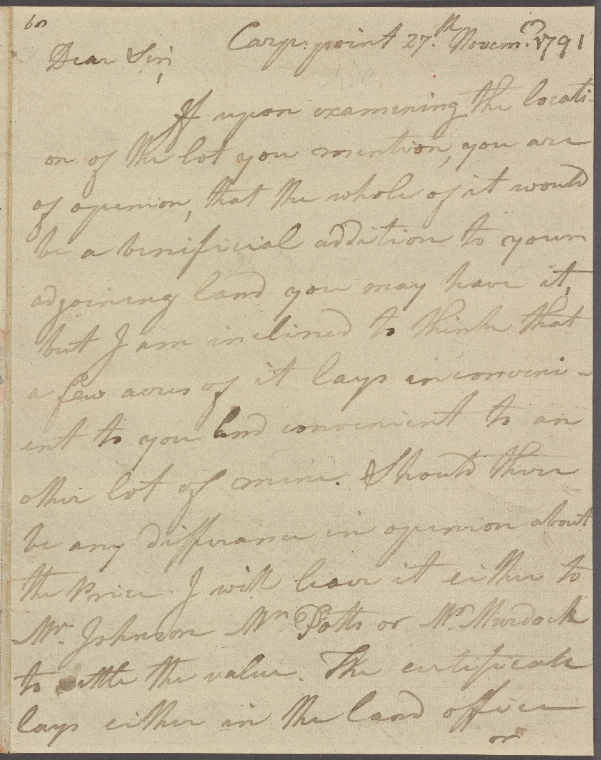 60
Carp: point 27.th Novem.r 1791
Dear Sir,
If upon examining the locati-
on of the lot you mention, you are
of opinion, that the whole of it would
be a benificial addition to your
adjoining land you may have it,
but I am inclined to think that
a few acres of it lays inconveni-
ent to you and convenient to an
other lot of mine. Should there
be any differance in opinion about
the Price I will leave it either to
Mr. Johnson Mr. Potts or Mr. Murdock
to settle the value. The certificate
lays either in the land office
or